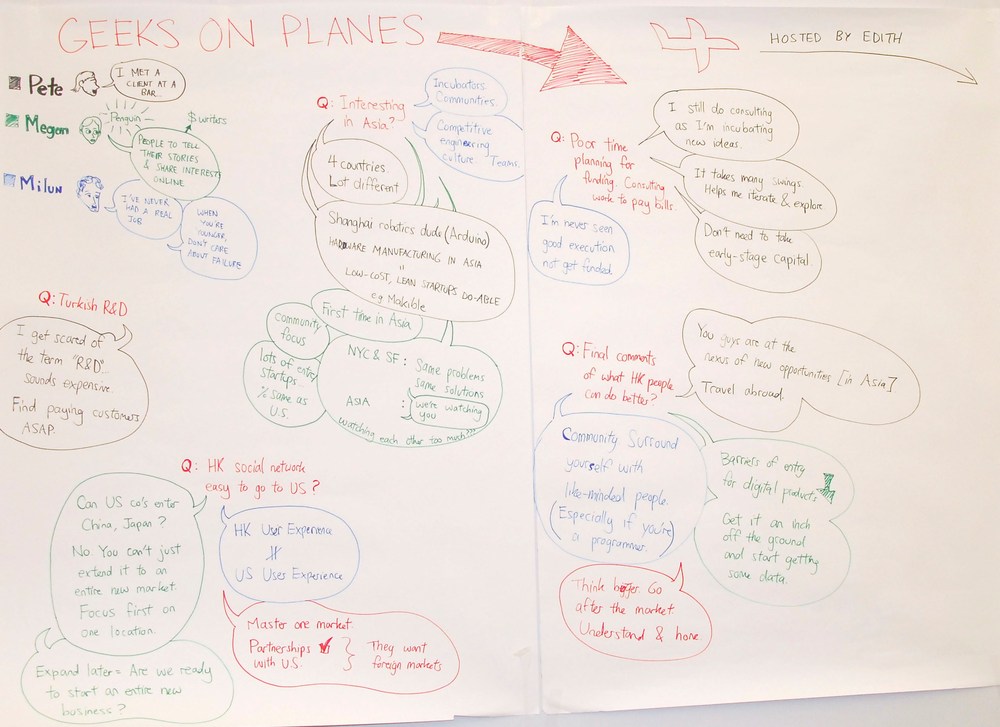 GEEKS ON PLANES
HOSTED BY EDITH
Pete
I MET A
CLIENT AT A
BAR...
Megan
Penguin
$ writers
PEOPLE TO TELL
THEIR STORIES
& SHARE INTEREST
ONLINE
Milun
I'VE NEVER
HAD A REAL
JOB
WHEN
YOU'RE
YOUNGER,
DON'T CARE
ABOUT FAILURE
Q: Interesting
in Asia?
Incubators.
Communities.
Competitive
engineering
culture. Teams.
4 countries.
Lot different
Shanghai robotics dude (Arduino)
HARDWARE MANUFACTURING IN ASIA
"
LOW-COST, LEAN STARTUPS DO-ABLE
eg Makible
First time in Asia
community
focus
lots of entry
startups.
% same as
U.S.
NYC & SF: Same problems
same solutions
ASIA : we're watching
you
watching each other too much???
Q: Turkish R&D
I get scared of
the term "R&D"...
sounds expensive.
Find paying customers
ASAP.
Q: HK social network
easy to go to US?
Can US co's enter
China, Japan?
No. You can't just
extend it to an
entire new market.
Focus first on
one location.
Expand later = Are we ready
to start an entire new
business?
HK User Experience
≠
US User Experience
Master one market.
Partnerships
with U.S.
They want
foreign markets
Q: Poor time
planning for
funding. Consulting
work to pay bills.
I still do consulting
as I'm incubating
new ideas.
It takes many swings.
Helps me iterate & explore
Don't need to take
early-stage capital.
I'm never seen
good execution
not get funded
Q: Final comments
of what HK people
can do better?
You guys are at the
nexus of new opportunities [in Asia]
Travel abroad.
Community. Surround
yourself with
like-minded people.
(Especially if you're
a programmer.)
Barriers of entry
for digital products
Get it an inch
off the ground
and start getting
some data.
Think bigger. Go
after the market.
Understand & hone.